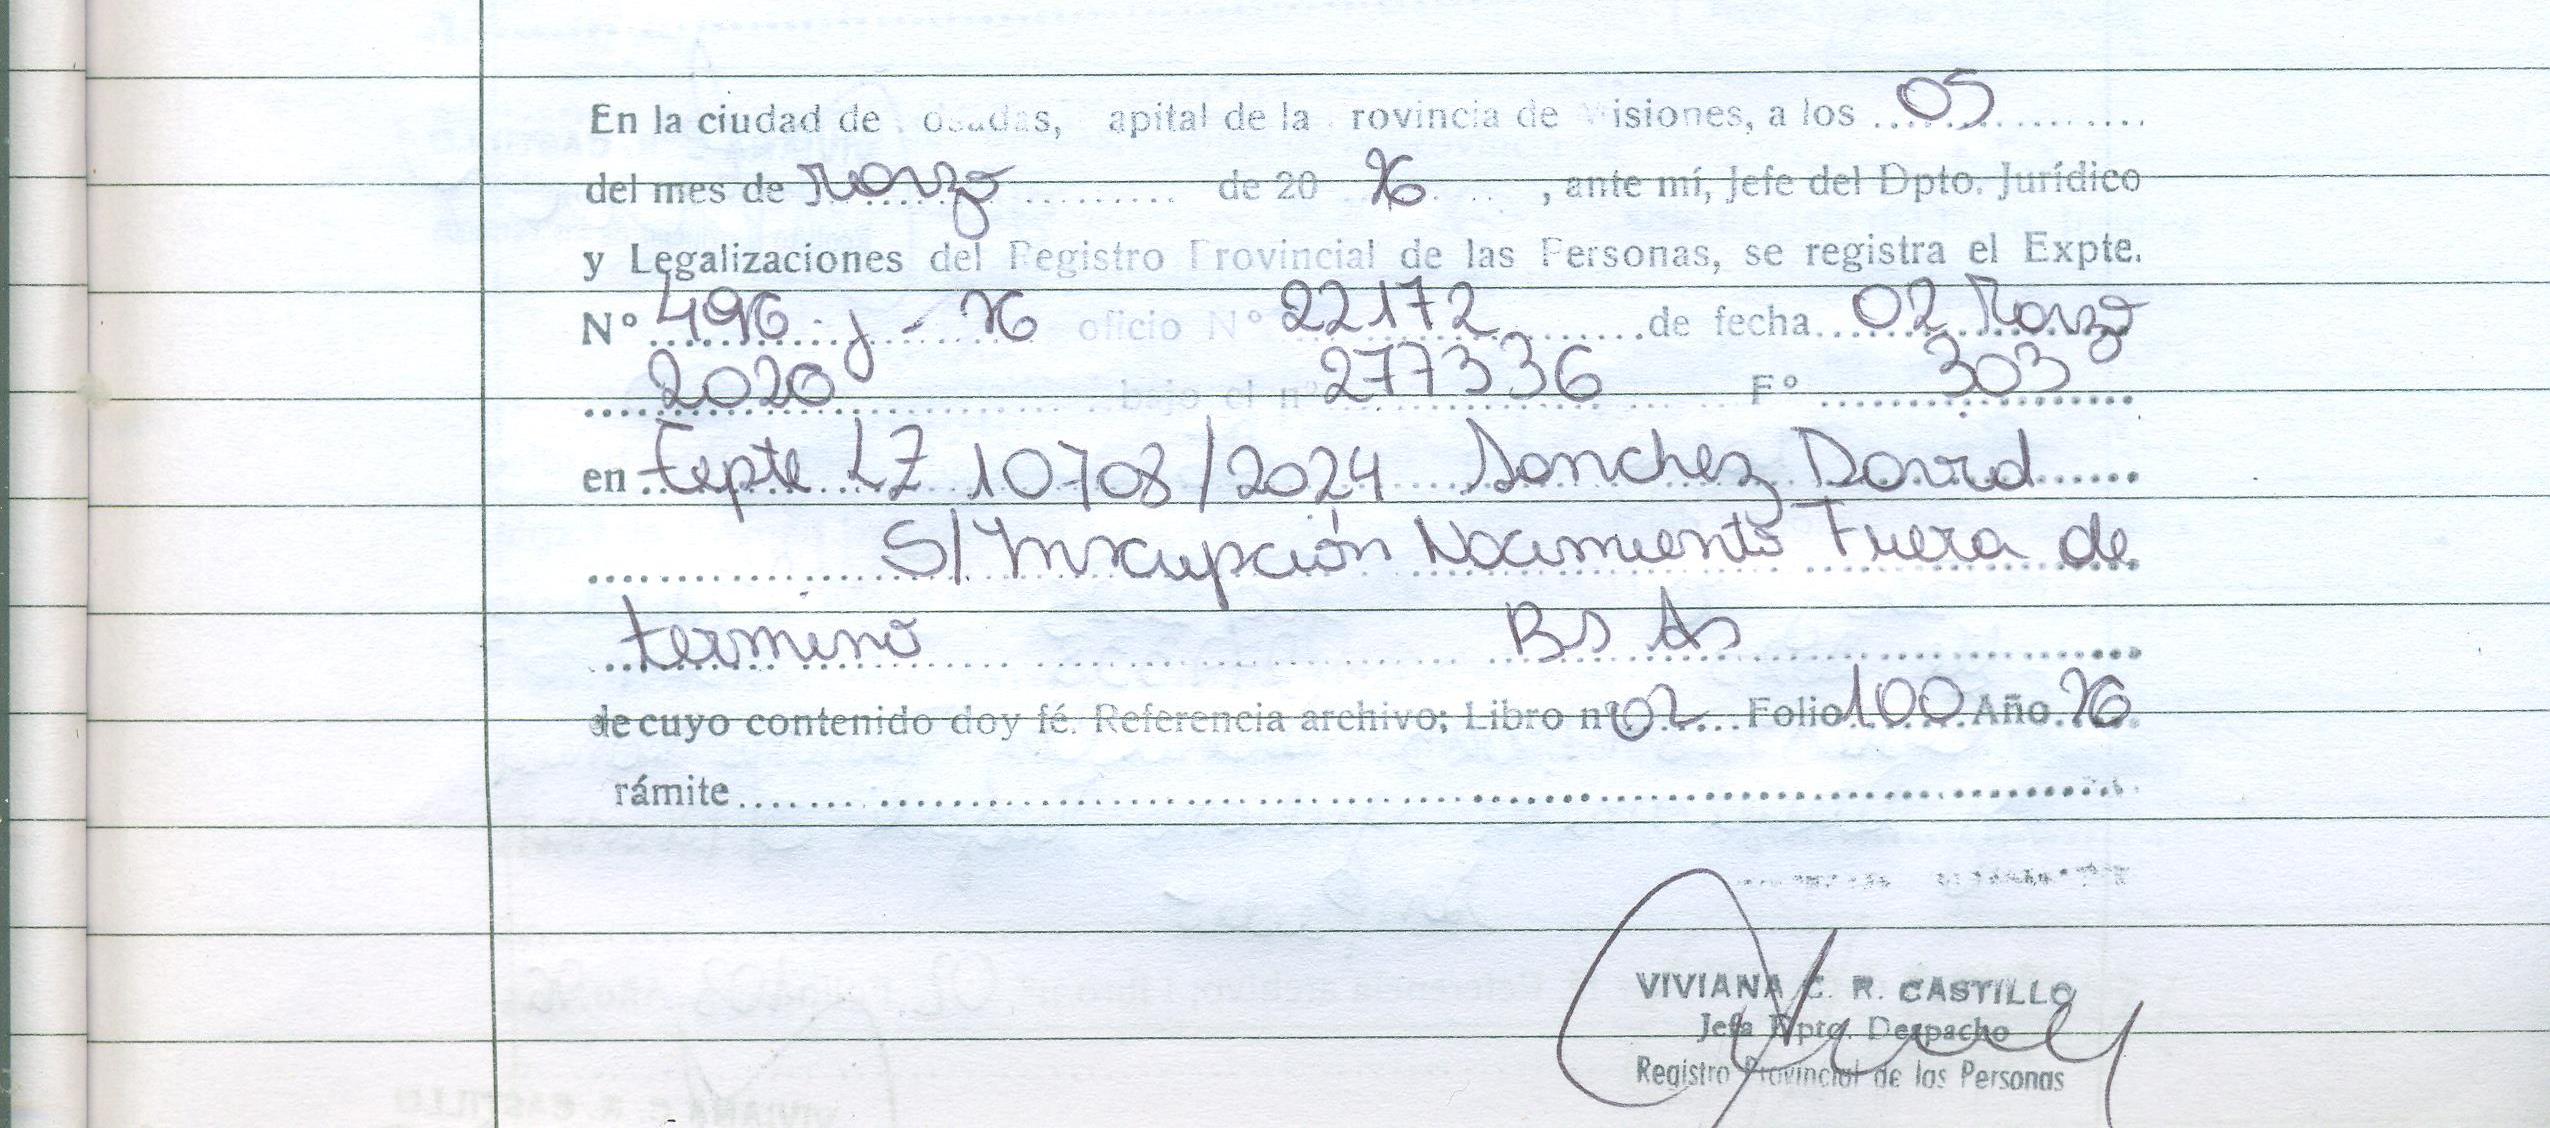 En la ciudad de Posadas, Capital de la Provincia de Misiones, a los 05
del mes de Marzo de 20 26, ante mí, Jefe del Dpto. Jurídico
y Legalizaciones del Registro Provincial de las Personas, se registra el Expte.
N° 496 - J - 26 oficio N° 22172 de fecha 02 Marzo
2020 bajo el n° 277336 F° 303
en Expte LZ 10708/2024 Sanchez David
S/ Inscripción Nacimiento Fuera de
termino Bs As
de cuyo contenido doy fé. Referencia archivo; Libro n° 02 Folio 100 Año 26
rámite
VIVIANA C. R. CASTILLO
Jefa Dpto. Despacho
Registro Provincial de las Personas